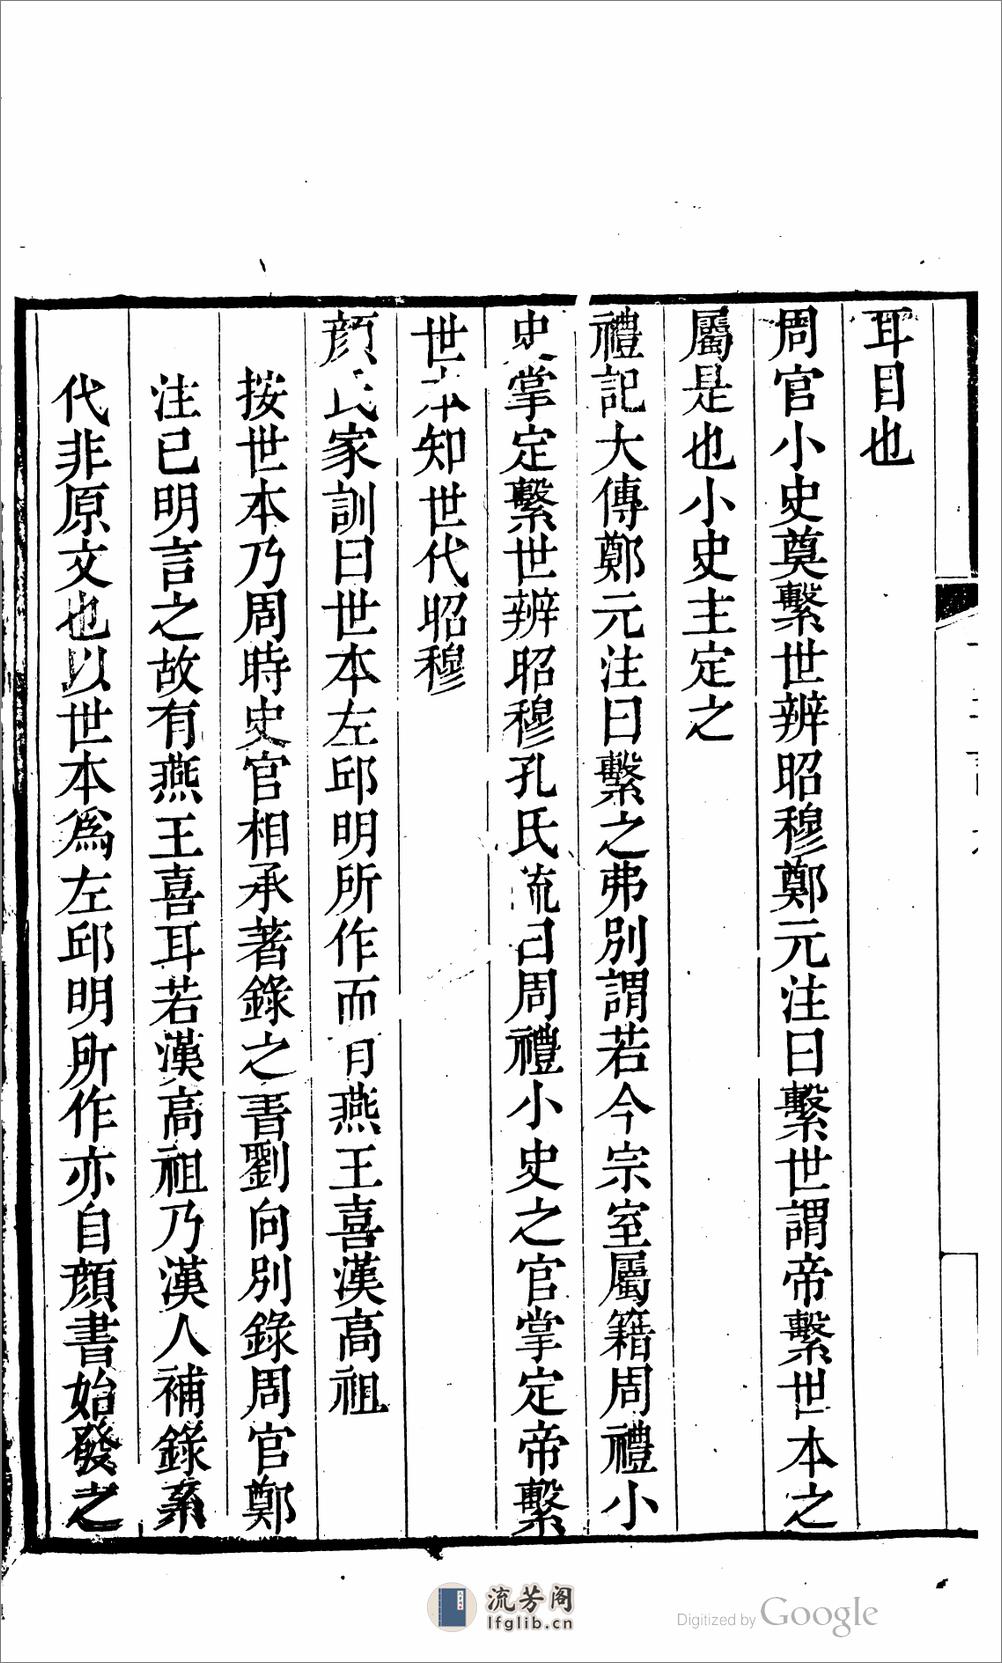 耳目也
周官小史奠繫世辨昭穆鄭元注曰繫世謂帝繫世本之
屬是也小史主定之
禮記大傳鄭元注曰繫之弗別謂若今宗室屬籍周禮小
史掌定繫世辨昭穆孔氏疏曰周禮小史之官掌定帝繫
世本知世代昭穆
顏氏家訓曰世本左邱明所作而有燕王喜漢高祖
按世本乃周時史官相承著錄之書劉向別錄周官鄭
注已明言之故有燕王喜耳若漢高祖乃漢人補錄系
代非原文也以世本爲左邱明所作亦自顏書始發之
流芳阁
lfglib.cn
Digitized by Google